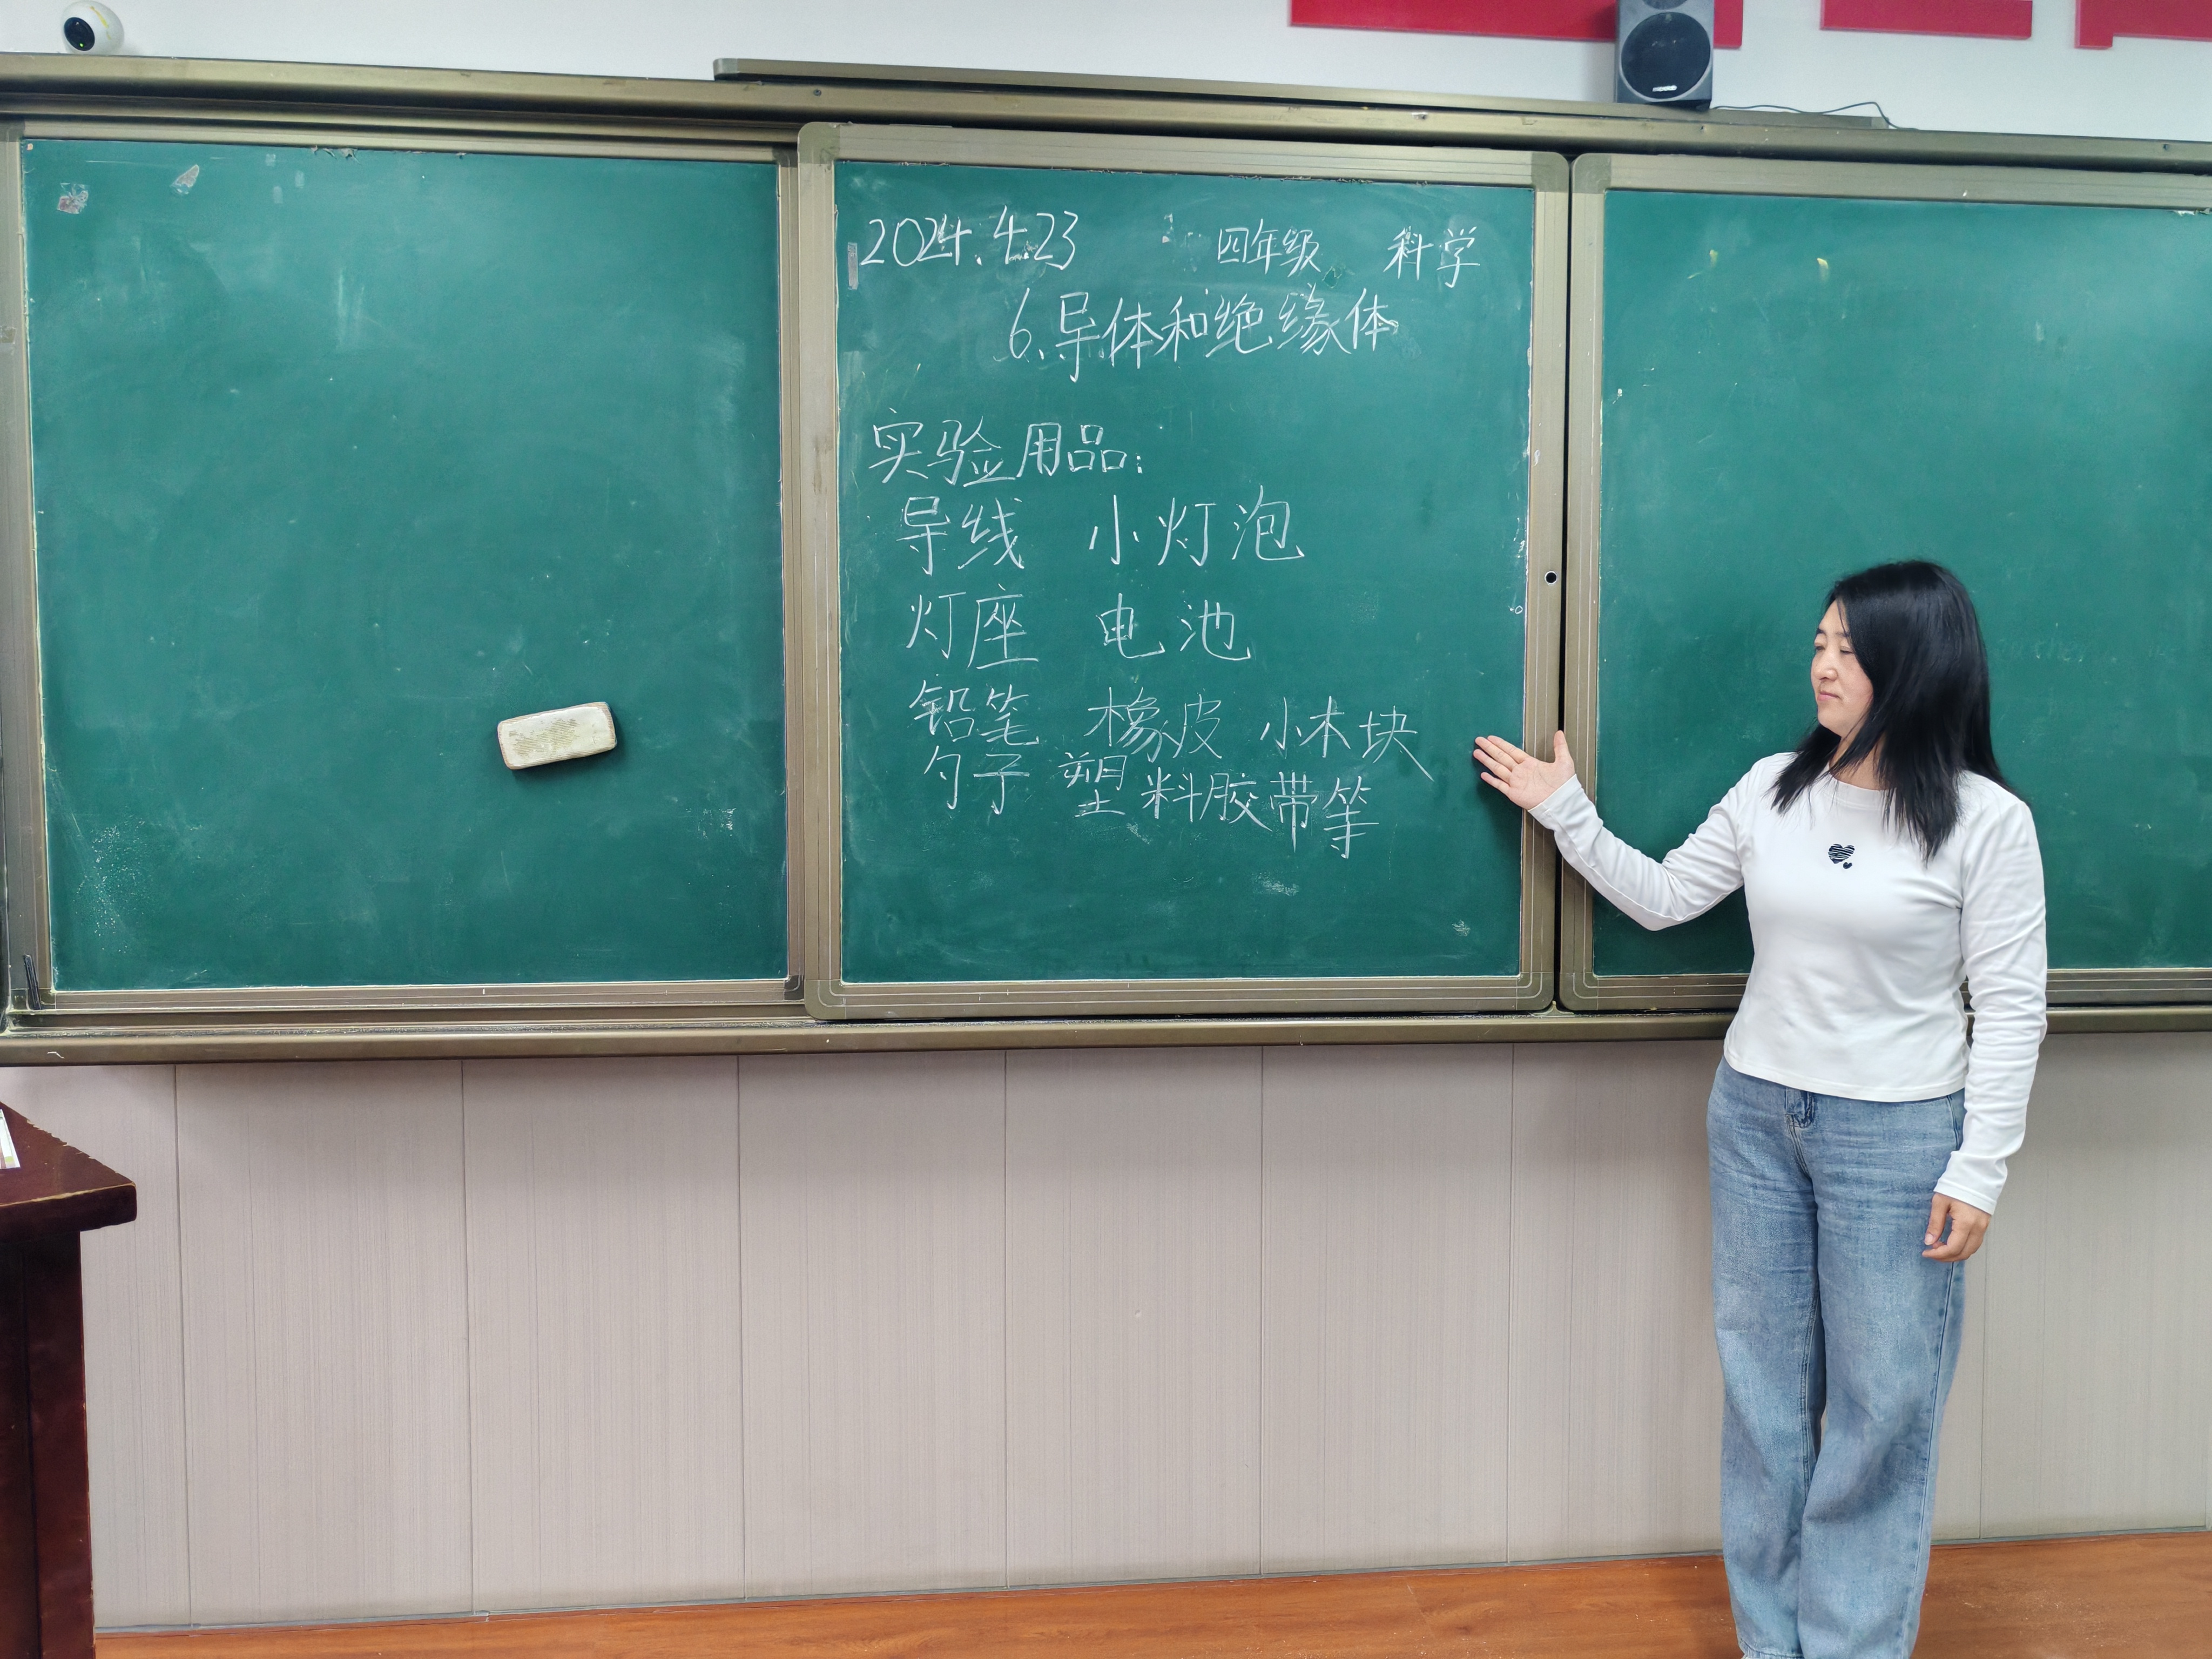 2024.4.23 四年级 科学
6.导体和绝缘体
实验用品:
导线 小灯泡
灯座 电池
铅笔 橡皮 小木块
勺子 塑料胶带等